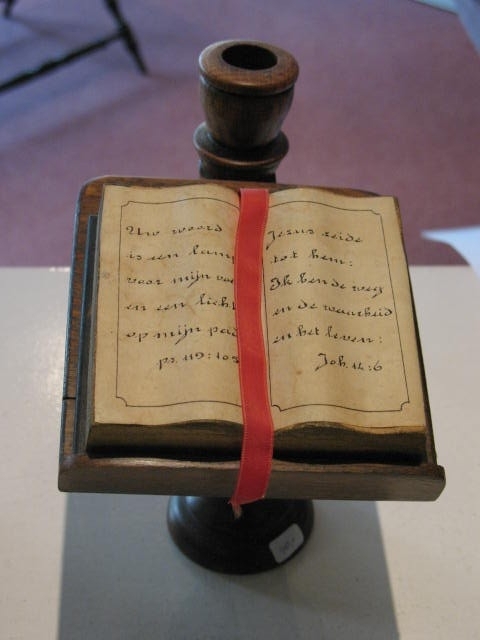 Uw woord
is een lamp
voor mijn voe
en een licht
op mijn pad
ps. 119:105
Jesus zeide
tot hem:
Ik ben de weg
en de waarheid
en het leven:
Joh. 14:6